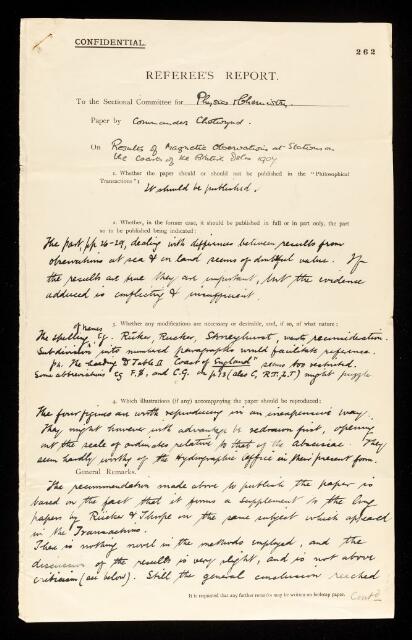 CONFIDENTIAL.
262
REFEREE'S REPORT.
To the Sectional Committee for Physics & Chemistry.
Paper by Commander Chetwynd.
On Results of Magnetic Observations at Stations on
the Coasts of the British Isles 1907
1. Whether the paper should or should not be published in the "Philosophical
Transactions":
It should be published.
2. Whether, in the former case, it should be published in full or in part only, the part
so to be published being indicated:
The part, pp 26-29, dealing with differences between results from
observations at sea & on land seems of doubtful value. If
the results are true they are important, but the evidence
adduced is conflicting & insufficient.
3. Whether any modifications are necessary or desirable, and, if so, of what nature:
The spelling of names, e.g. Rücker, Rucker, Stoneyhurst, wants reconsideration.
Subdivision into numbered paragraphs would facilitate reference.
p4. The heading to Table II "Coast of England" seems too restricted.
Some abbreviations e.g. F.B., and C.G. on p 13 (also C, R.T., L.T) might puzzle
4. Which illustrations (if any) accompanying the paper should be reproduced:
The four figures are worth reproducing in an inexpensive way.
They might however with advantage be redrawn first, opening
out the scale of ordinates relative to that of the abscissae. They
seem hardly worthy of the Hydrographic Office in their present form.
General Remarks.
The recommendation made above to publish the paper is
based on the fact that it forms a supplement to the long
papers by Rücker & Thorpe on the same subject which appeared
in the Transactions.
There is nothing novel in the methods employed, and the
discussion of the results is very slight, and is not above
criticism (see below). Still the general conclusion reached
It is requested that any further remarks may be written on foolscap paper.
Contd